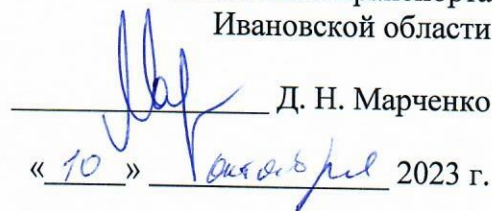 транспорта
Ивановской области
Д. Н. Марченко
«10» октября 2023 г.